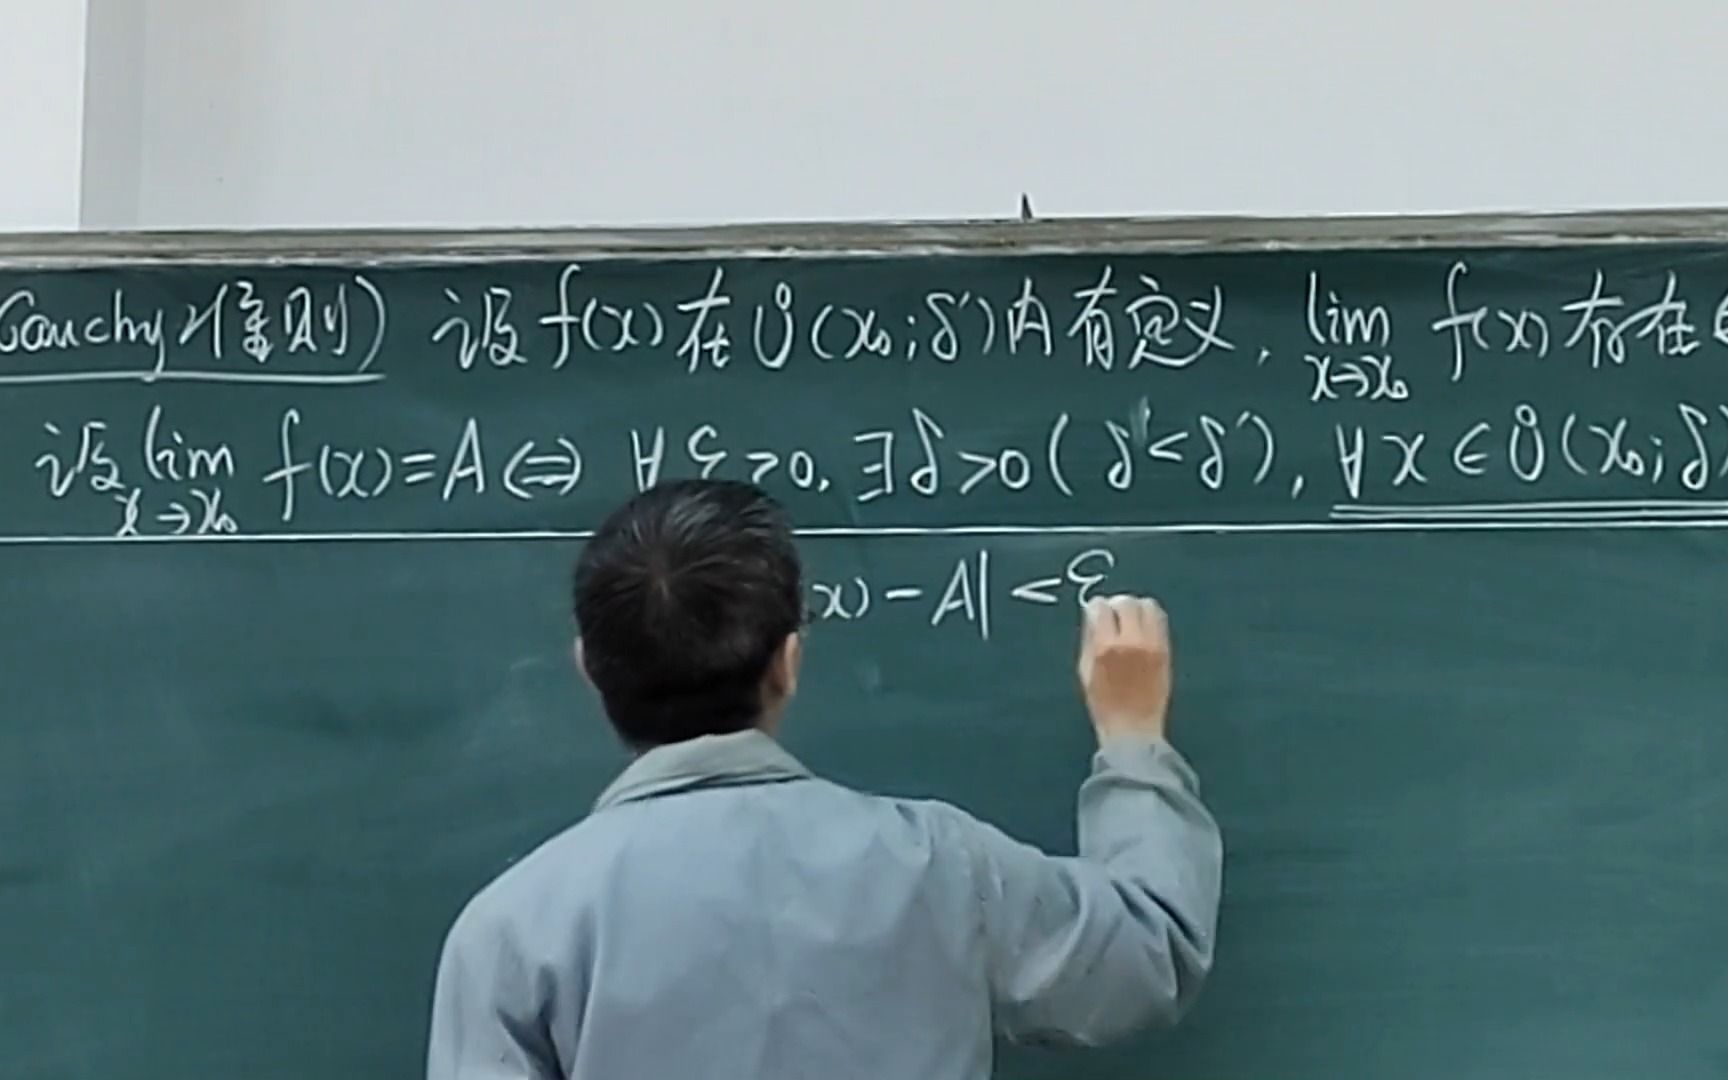 Cauchy准则) 设 f(x) 在 Ů(x₀;δ′) 内有定义, lim x→x₀ f(x) 存在
设 lim x→x₀ f(x)=A ⇔ ∀ε>0, ∃δ>0(δ<δ′), ∀x∈Ů(x₀;δ)
x)-A|<ε